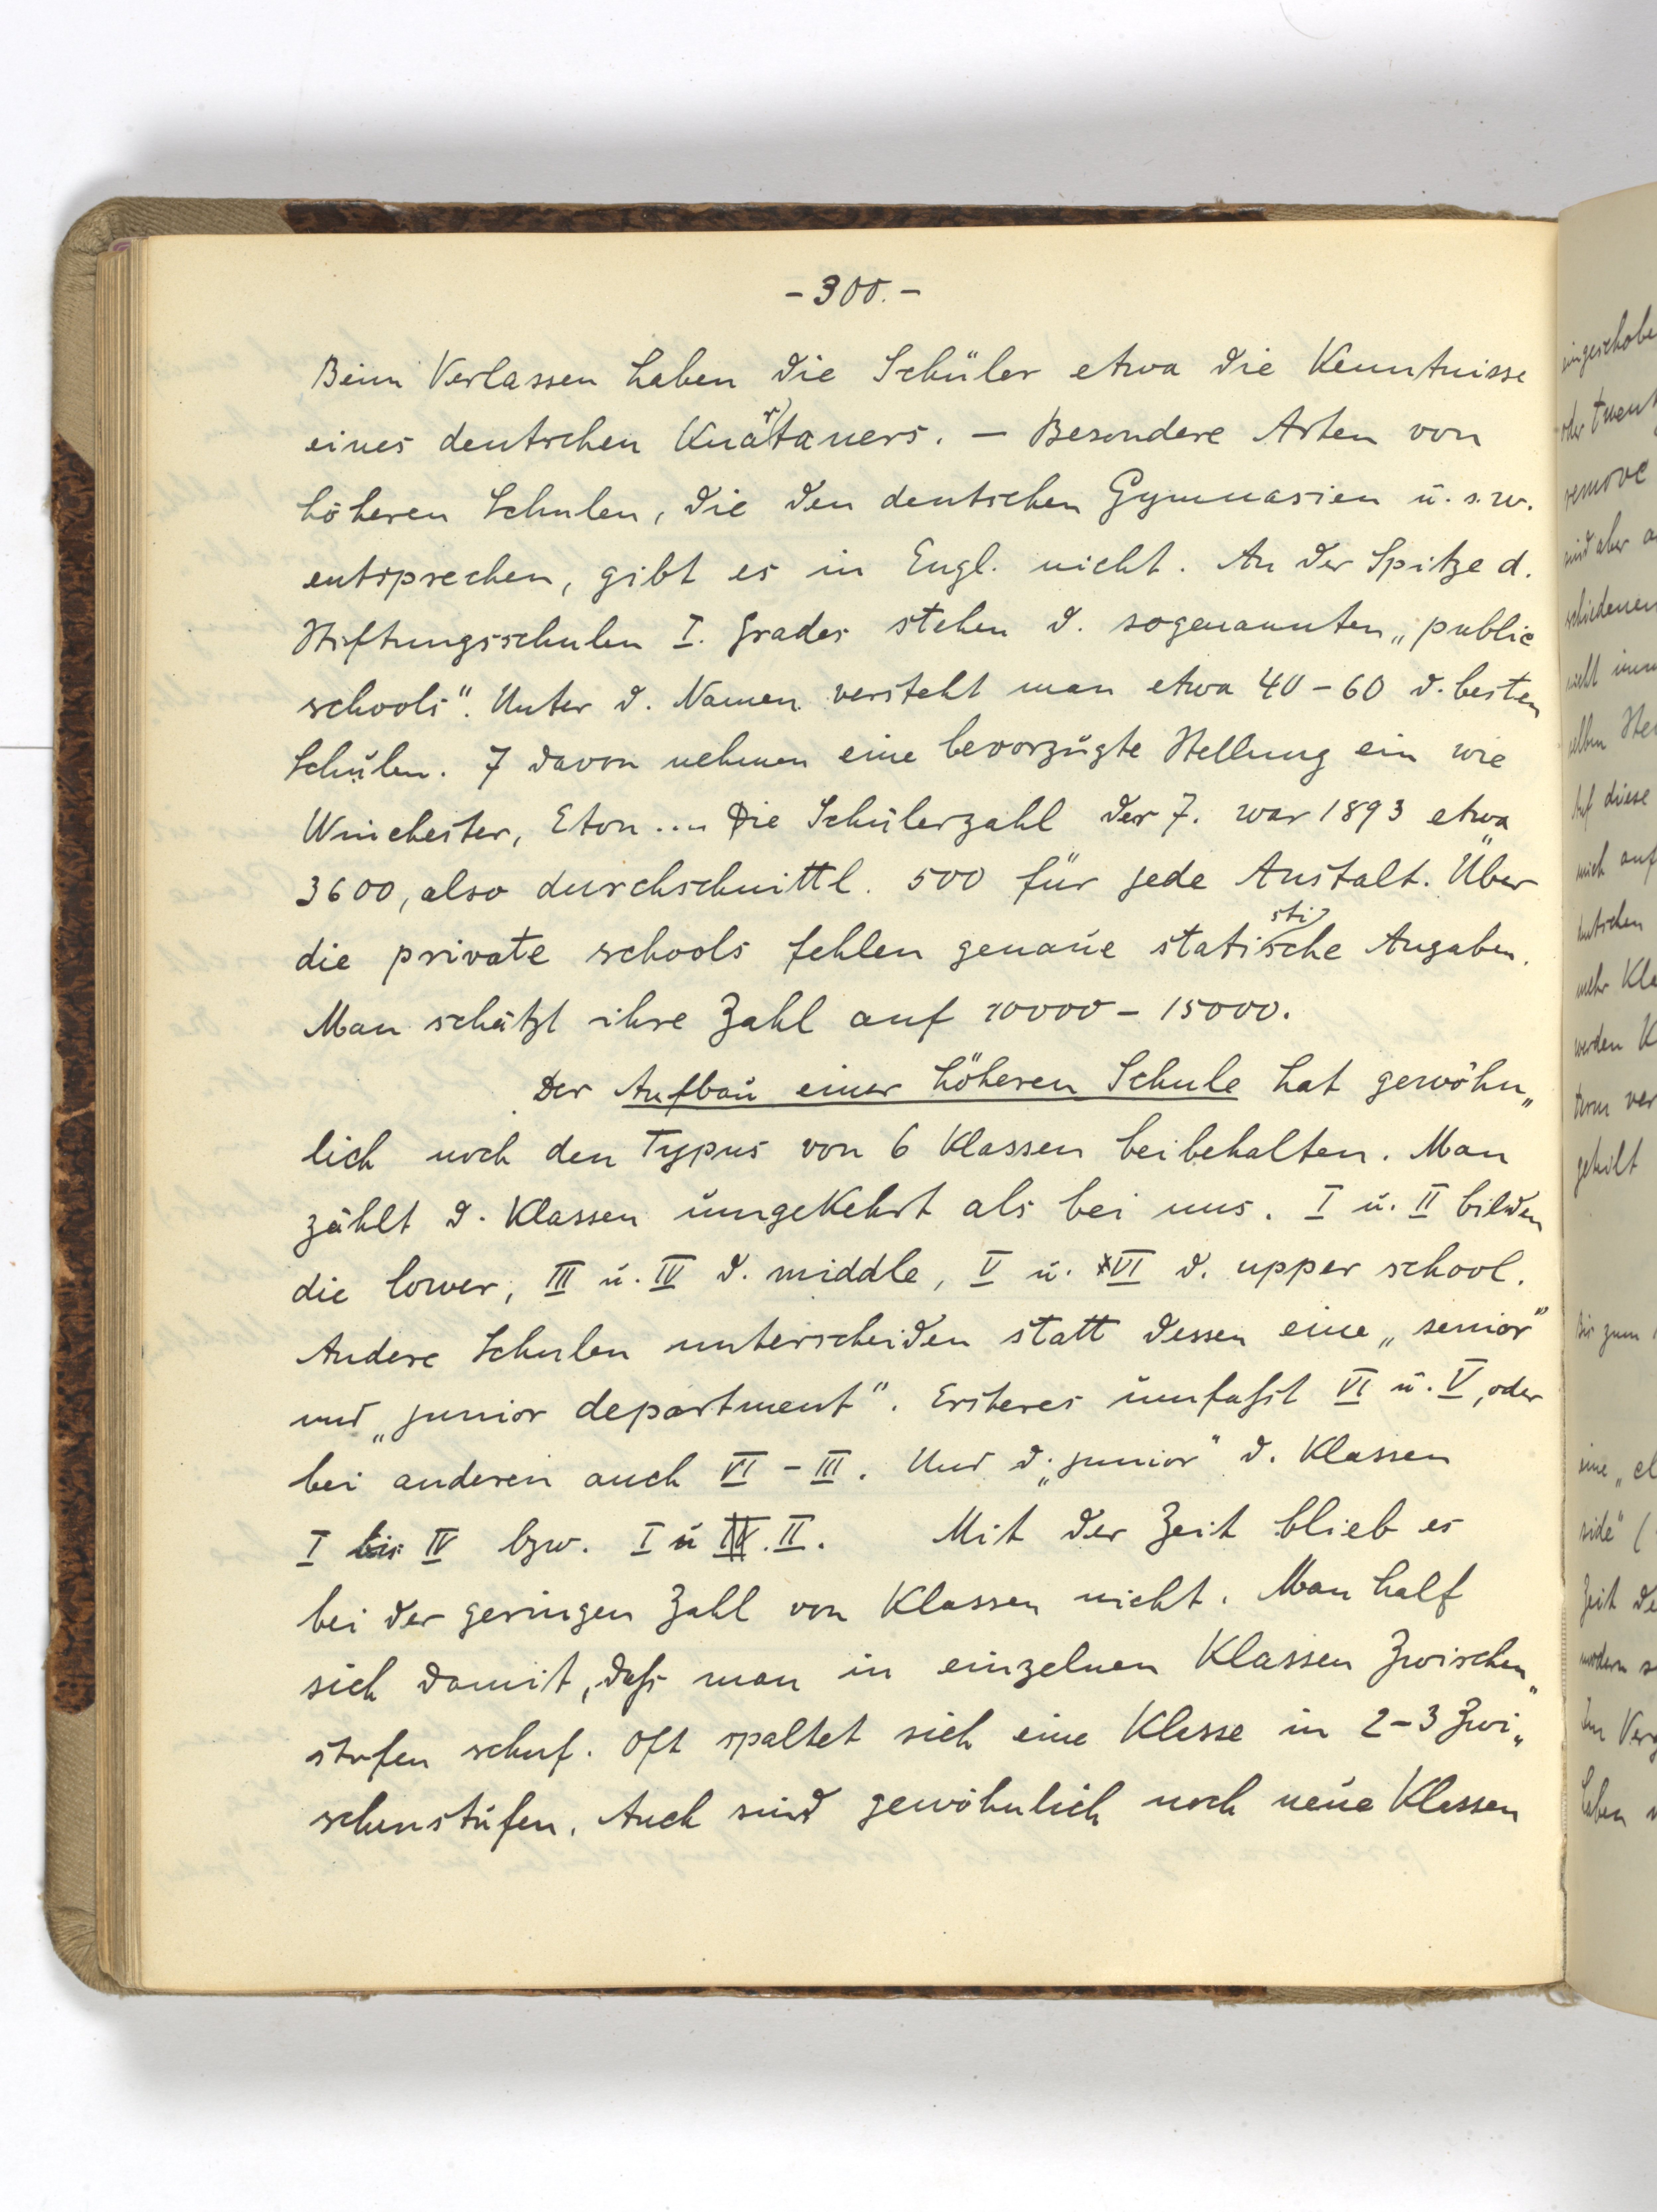 - 300. -
Beim Verlassen haben die Schüler etwa die Kenntnisse
eines deutschen Knartaners. — Besondere Arten von
höheren Schulen, die den deutschen Gymnasien u. s. w.
entsprechen, gibt es in Engl. nicht. An der Spitze d.
Stiftungsschulen I. Grades stehen d. sogenannten „public
schools“. Unter d. Namen versteht man etwa 40-60 d. besten
Schulen. 7 davon nehmen eine bevorzugte Stellung ein wie
Winchester, Eton.... Die Schülerzahl der 7. war 1893 etwa
3600, also durchschnittl. 500 für jede Anstalt. Über
die private schools fehlen genaue statistische Angaben.
Man schätzt ihre Zahl auf 10000 - 15000.
Der Aufbau einer höheren Schule hat gewöhn„
lich noch den Typus von 6 Klassen beibehalten. Man
zählt d. Klassen umgekehrt als bei uns. I u. II bilden
die lower, III u. IV d. middle, V u. VI d. upper school.
Andere Schulen unterscheiden statt dessen eine „senior“
und „junior department“. Ersteres umfaßt VI u. V, oder
bei anderen auch VI - III. Und d. „junior“ d. Klassen
I bis IV bzw. I u II. Mit der Zeit blieb es
bei der geringen Zahl von Klassen nicht. Man half
sich damit, daß man in einzelnen Klassen Zwischen„
stufen schuf. Oft spaltet sich eine Klasse in 2-3 Zwi„
schenstufen. Auch sind gewöhnlich noch neue Klassen
eingeschobe
oder
remove
sind aber
schiedenen
nicht
selben
Auf diese
mich auf
mehr Kla
werden K
term ver
geteilt
Bis zum
eine „cl
side“ (
Zeit de
modern s
Im Verg
haben